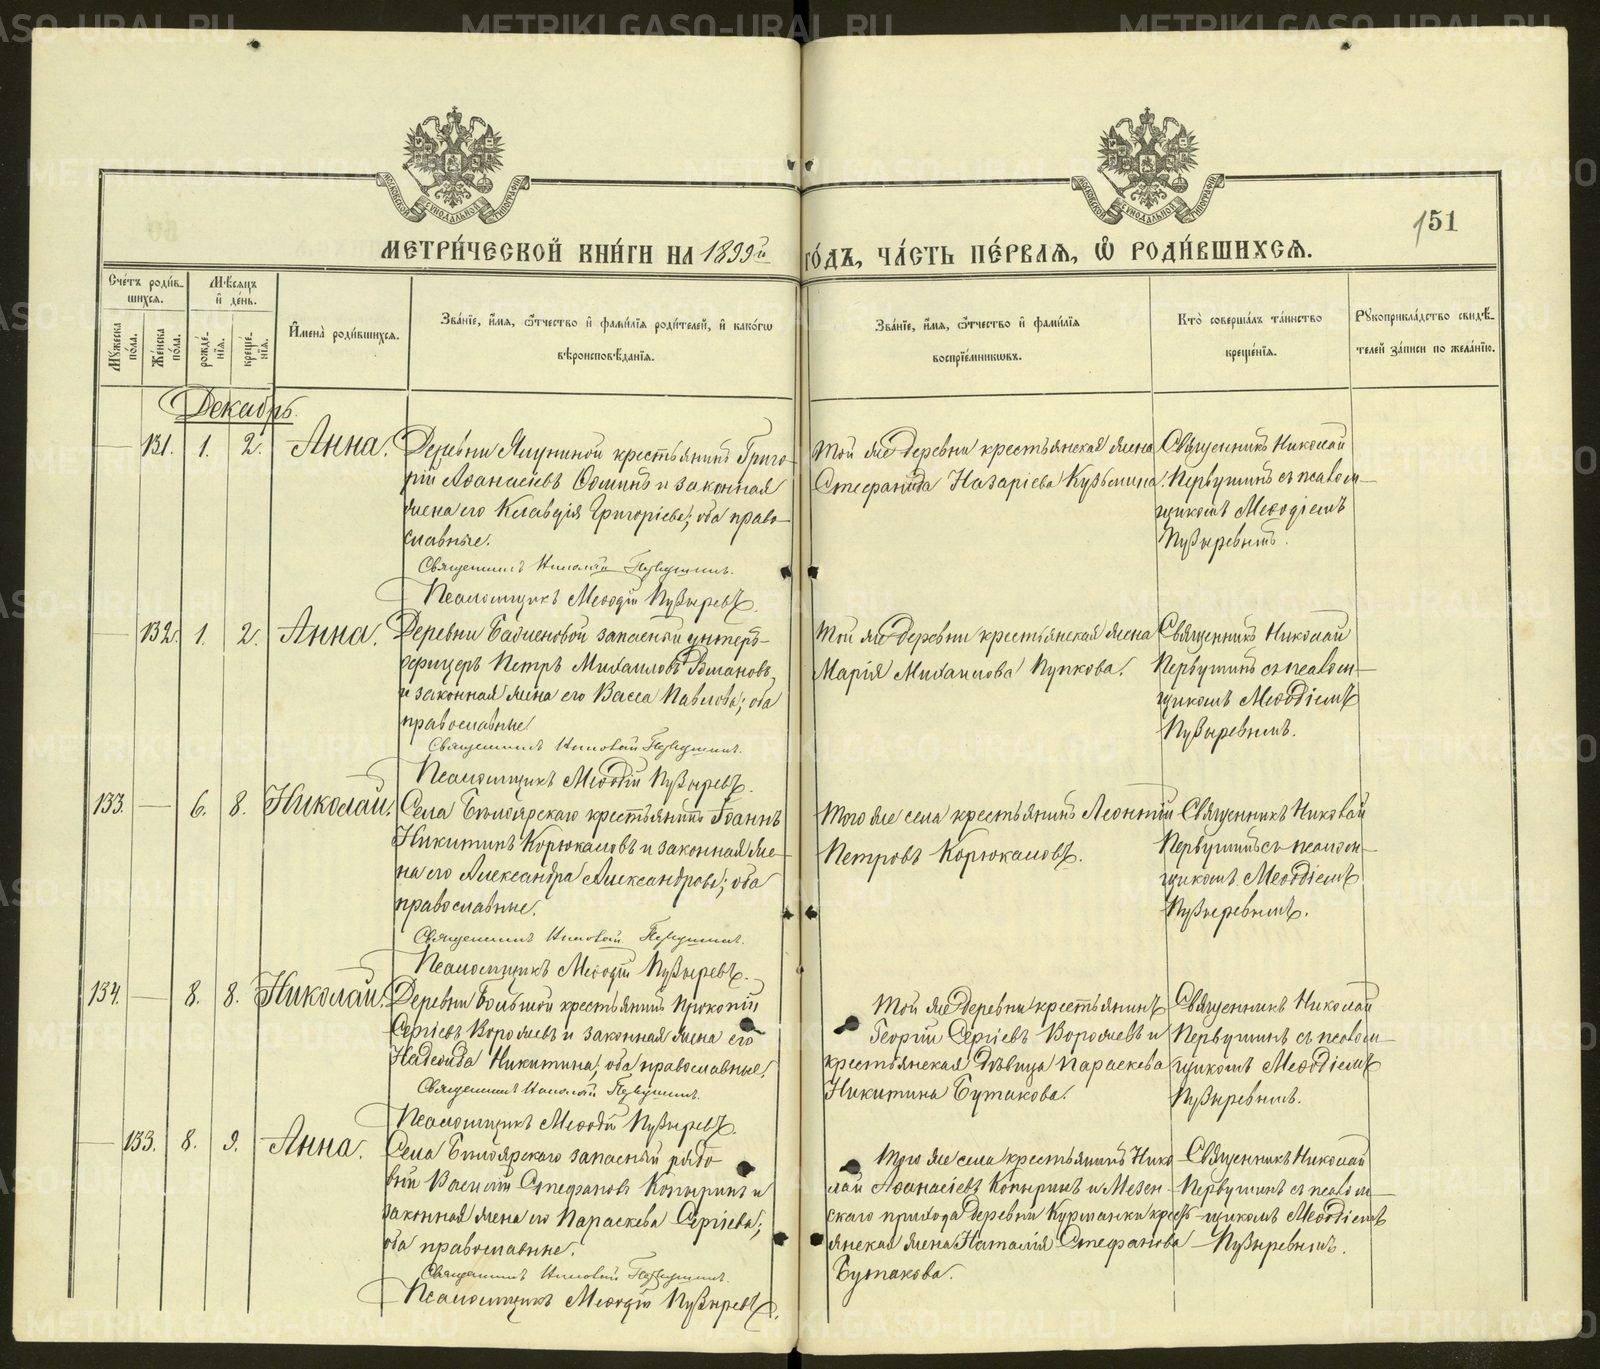 151
МЕТРИ́ЧЕСКОЙ КНИ́ГИ НА 1899й ГО́ДЪ, ЧА́СТЬ ПЕ́РВАЯ, Ѡ҆ РОДИ́ВШИХСЯ.
Сче́тъ роди́в-
шихся.
Мѣ́сяцъ
и҆ де́нь.
Мꙋ́жеска по́ла.
Же́нска по́ла.
рожде́-
нїѧ.
креще́-
нїѧ.
И҆мена̀ роди́вшихся.
Зва́нїе, и҆́мя, ѻ҆́тчество и҆ фами́лїя роди́телей, и҆ како́гѡ
вѣроисповѣ́данїя.
Зва́нїе, и҆́мя, ѻ҆́тчество и҆ фами́лїя
воспрїе́мникѡвъ.
Кто̀ соверша́лъ та́инство
креще́нїя.
Рꙋкоприкла́дство свидѣ́-
телей за́писи по жела́нїю.
Декабрь.
131. 1. 2. Анна.
Деревни Ялуниной крестьянинъ Григо-
рій Аѳанасіевъ Ошипъ и законная
жена его Клавдія Григоріева; оба право-
славные.
Священникъ Николай Первушинъ.
Псаломщикъ Меѳодій Пузыревъ.
Той же деревни крестьянская жена
Стефанида Назаріева Кузьмина.
Священникъ Николай
Первушинъ съ псалом-
щикомъ Меѳодіемъ
Пузыревымъ.
132. 1. 2. Анна.
Деревни запасный унтеръ-
офицеръ Петръ Михаиловъ Романовъ
и законная жена его Васса Павлова; оба
православные
Священникъ Николай Первушинъ.
Псаломщикъ Меѳодій Пузыревъ.
Той же деревни крестьянская жена
Марія Михаилова Пупкова.
Священникъ Николай
Первушинъ съ псалом-
щикомъ Меѳодіемъ
Пузыревымъ.
133. 6. 8. Николай.
Села Бѣлоярскаго крестьянинъ Іоаннъ
Никитинъ Корюкаловъ и законная же-
на его Александра Александрова; оба
православные.
Священникъ Николай Первушинъ.
Псаломщикъ Меѳодій Пузыревъ.
Того же села крестьянинъ Леонтій
Петровъ Корюкаловъ.
Священникъ Николай
Первушинъ съ псалом-
щикомъ Меѳодіемъ
Пузыревымъ.
134. 8. 8. Николай.
Деревни Большой крестьянинъ Прокопій
Сергіевъ Ворожевъ и законная жена его
Надежда Никитина; оба православные.
Священникъ Николай Первушинъ.
Псаломщикъ Меѳодій Пузыревъ.
Той же деревни крестьянинъ
Георгій Сергіевъ Ворожевъ и
крестьянская дѣвица Параскева
Никитина Бутакова.
Священникъ Николай
Первушинъ съ псалом-
щикомъ Меѳодіемъ
Пузыревымъ.
133. 8. 9. Анна.
Села Бѣлоярскаго запасный рядо-
вой Василій Стефановъ Копыринъ и
законная жена его Параскева Сергіева;
оба православные.
Священникъ Николай Первушинъ.
Псаломщикъ Меѳодій Пузыревъ.
Того же села крестьянинъ Нико-
лай Аѳанасіевъ Копыринъ и Мезен-
скаго прихода деревни Курманки кресть-
янская жена Наталія Стефанова
Бутакова.
Священникъ Николай
Первушинъ съ псалом-
щикомъ Меѳодіемъ
Пузыревымъ.
METRIKI.GASO-URAL.RU